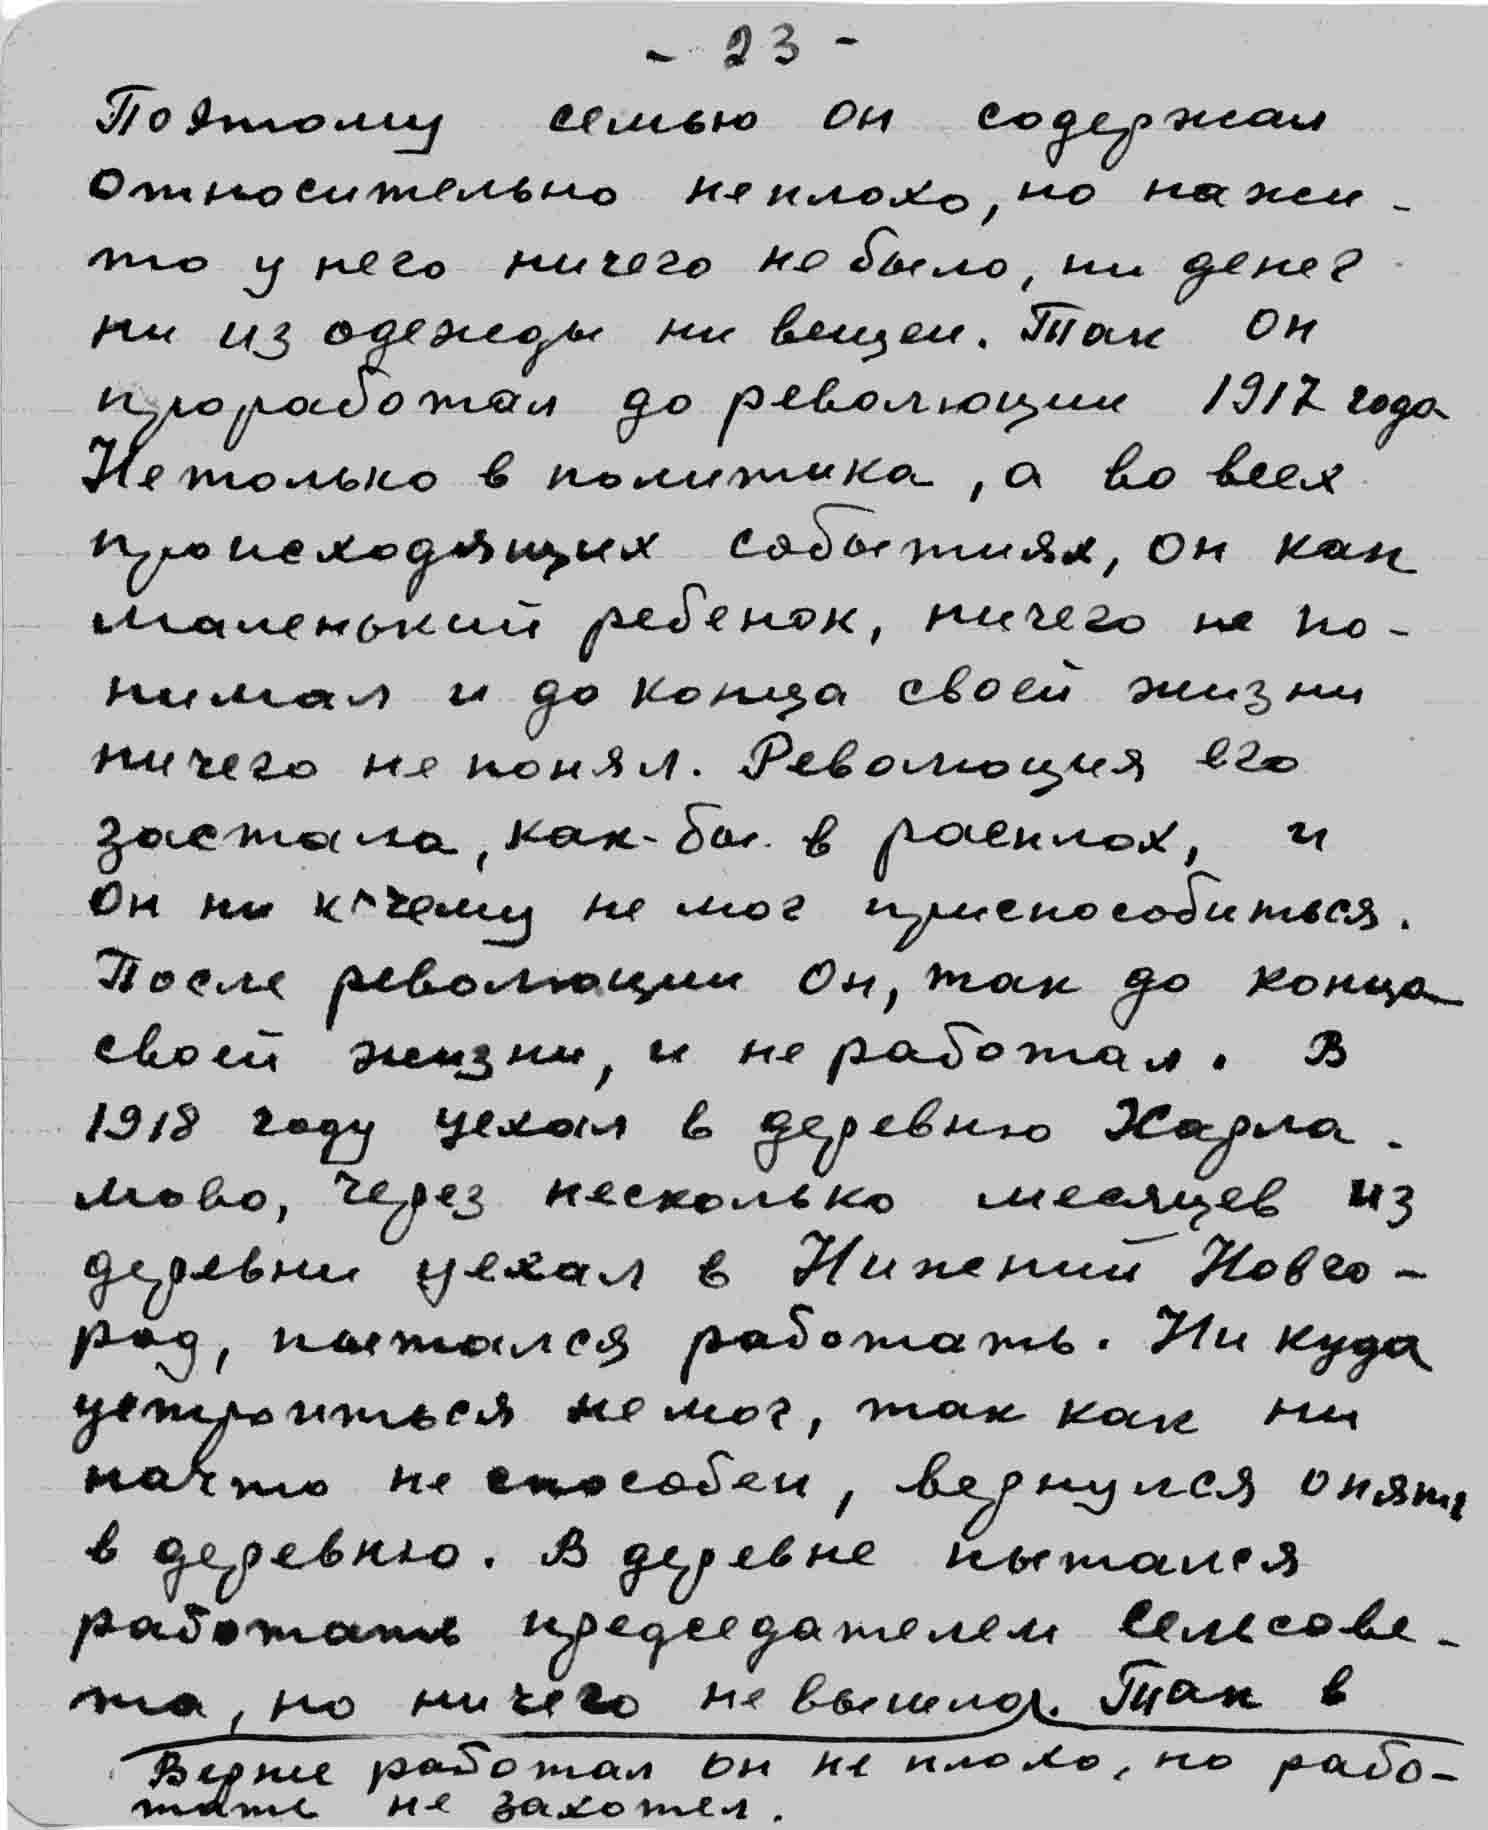 - 23 -
Поэтому семью он содержал
относительно неплохо, но нажи-
то у него ничего не было, ни денег
ни из одежды ни вещей. Так он
проработал до революции 1917 года
Нетолько в политика, а во всех
происходящих событиях, он как
маленький ребенок, ничего не по-
нимал и до конца своей жизни
ничего не понял. Революция его
застала, как-бы в расплох, и
он ни к чему не мог приспособиться.
После революции он, так до конца
своей жизни, и не работал. В
1918 году уехал в деревню Харла-
мово, через несколько месяцев из
деревни уехал в Нижений Новго-
род, пытался работать. Ни куда
устроиться немог, так как ни
начто не способен, вернулся опять
в деревню. В деревне пытался
работать председателем сельсове-
та, но ничего не вышло. Так в
Верне работал он не плохо, но рабо-
тать не захотел.